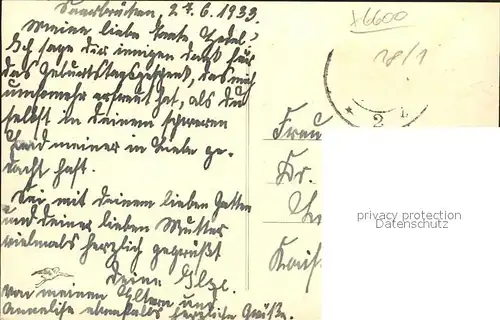 Saarbrücken, 27.6.1933.
Meine liebe Tante Hedel!
Ich sage dir innigen Dank für
das Geburtstagsgeschenk, das mich
umsomehr erfreut hat, als du
selbst in deinem schweren
Leid meiner in Liebe ge-
dacht hast.
Sei mit deinem lieben Gatten
und deiner lieben Mutter
vielmals herzlich gegrüßt
Deine Ilse.
von meinen Eltern und
Annelise ebenfalls herzliche Grüße.
x6600
18/1
2
Frau
Dr.
privacy protection
www.ansichtskarten-center.de